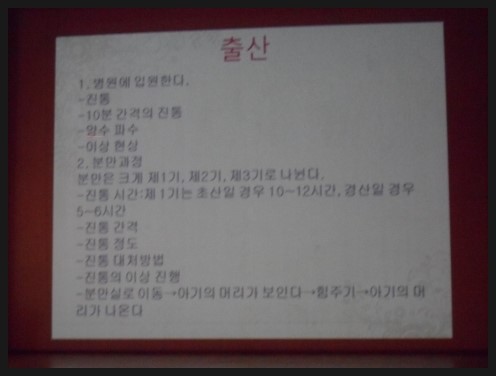 출산
1. 병원에 입원한다.
-진통
-10분 간격의 진통
-양수 파수
-이상 현상
2. 분만과정
분만은 크게 제1기, 제2기, 제3기로 나뉜다.
-진통 시간:제 1기는 초산일 경우 10~12시간, 경산일 경우
5~6시간
-진통 간격
-진통 정도
-진통 대처방법
-진통의 이상 진행
-분만실로 이동→아기의 머리가 보인다→힘주기→아기의 머
리가 나온다